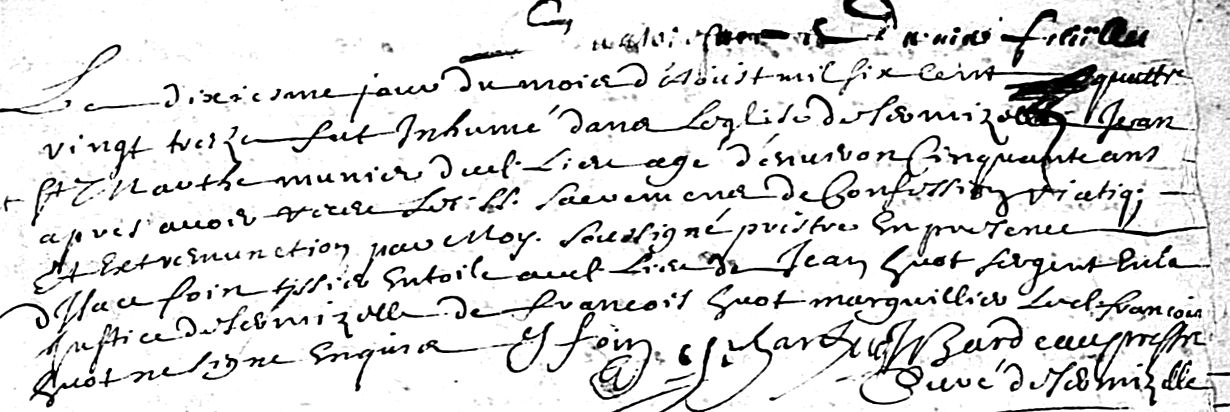 Le dixiesme jour du mois d'Aoust mil six cent quattre
vingt treze fut Inhumé dans Leglise de Sermizelle Jean
St Marthe munier dud. Lieu agé d'enuiron Cinquante ans
apres auoir receu les SS. sacremens de Confession viatiq;
Et Extremunction par Moy soussigné prestre En presence
d'Isac foin tissier En toile aud. Lieu de Jean huot sergent En la
justice de Sermizelle de francois huot marguillier Led. francois
huot ne signe Enquis foin Bardeau prestre
Curé de Sermizelle